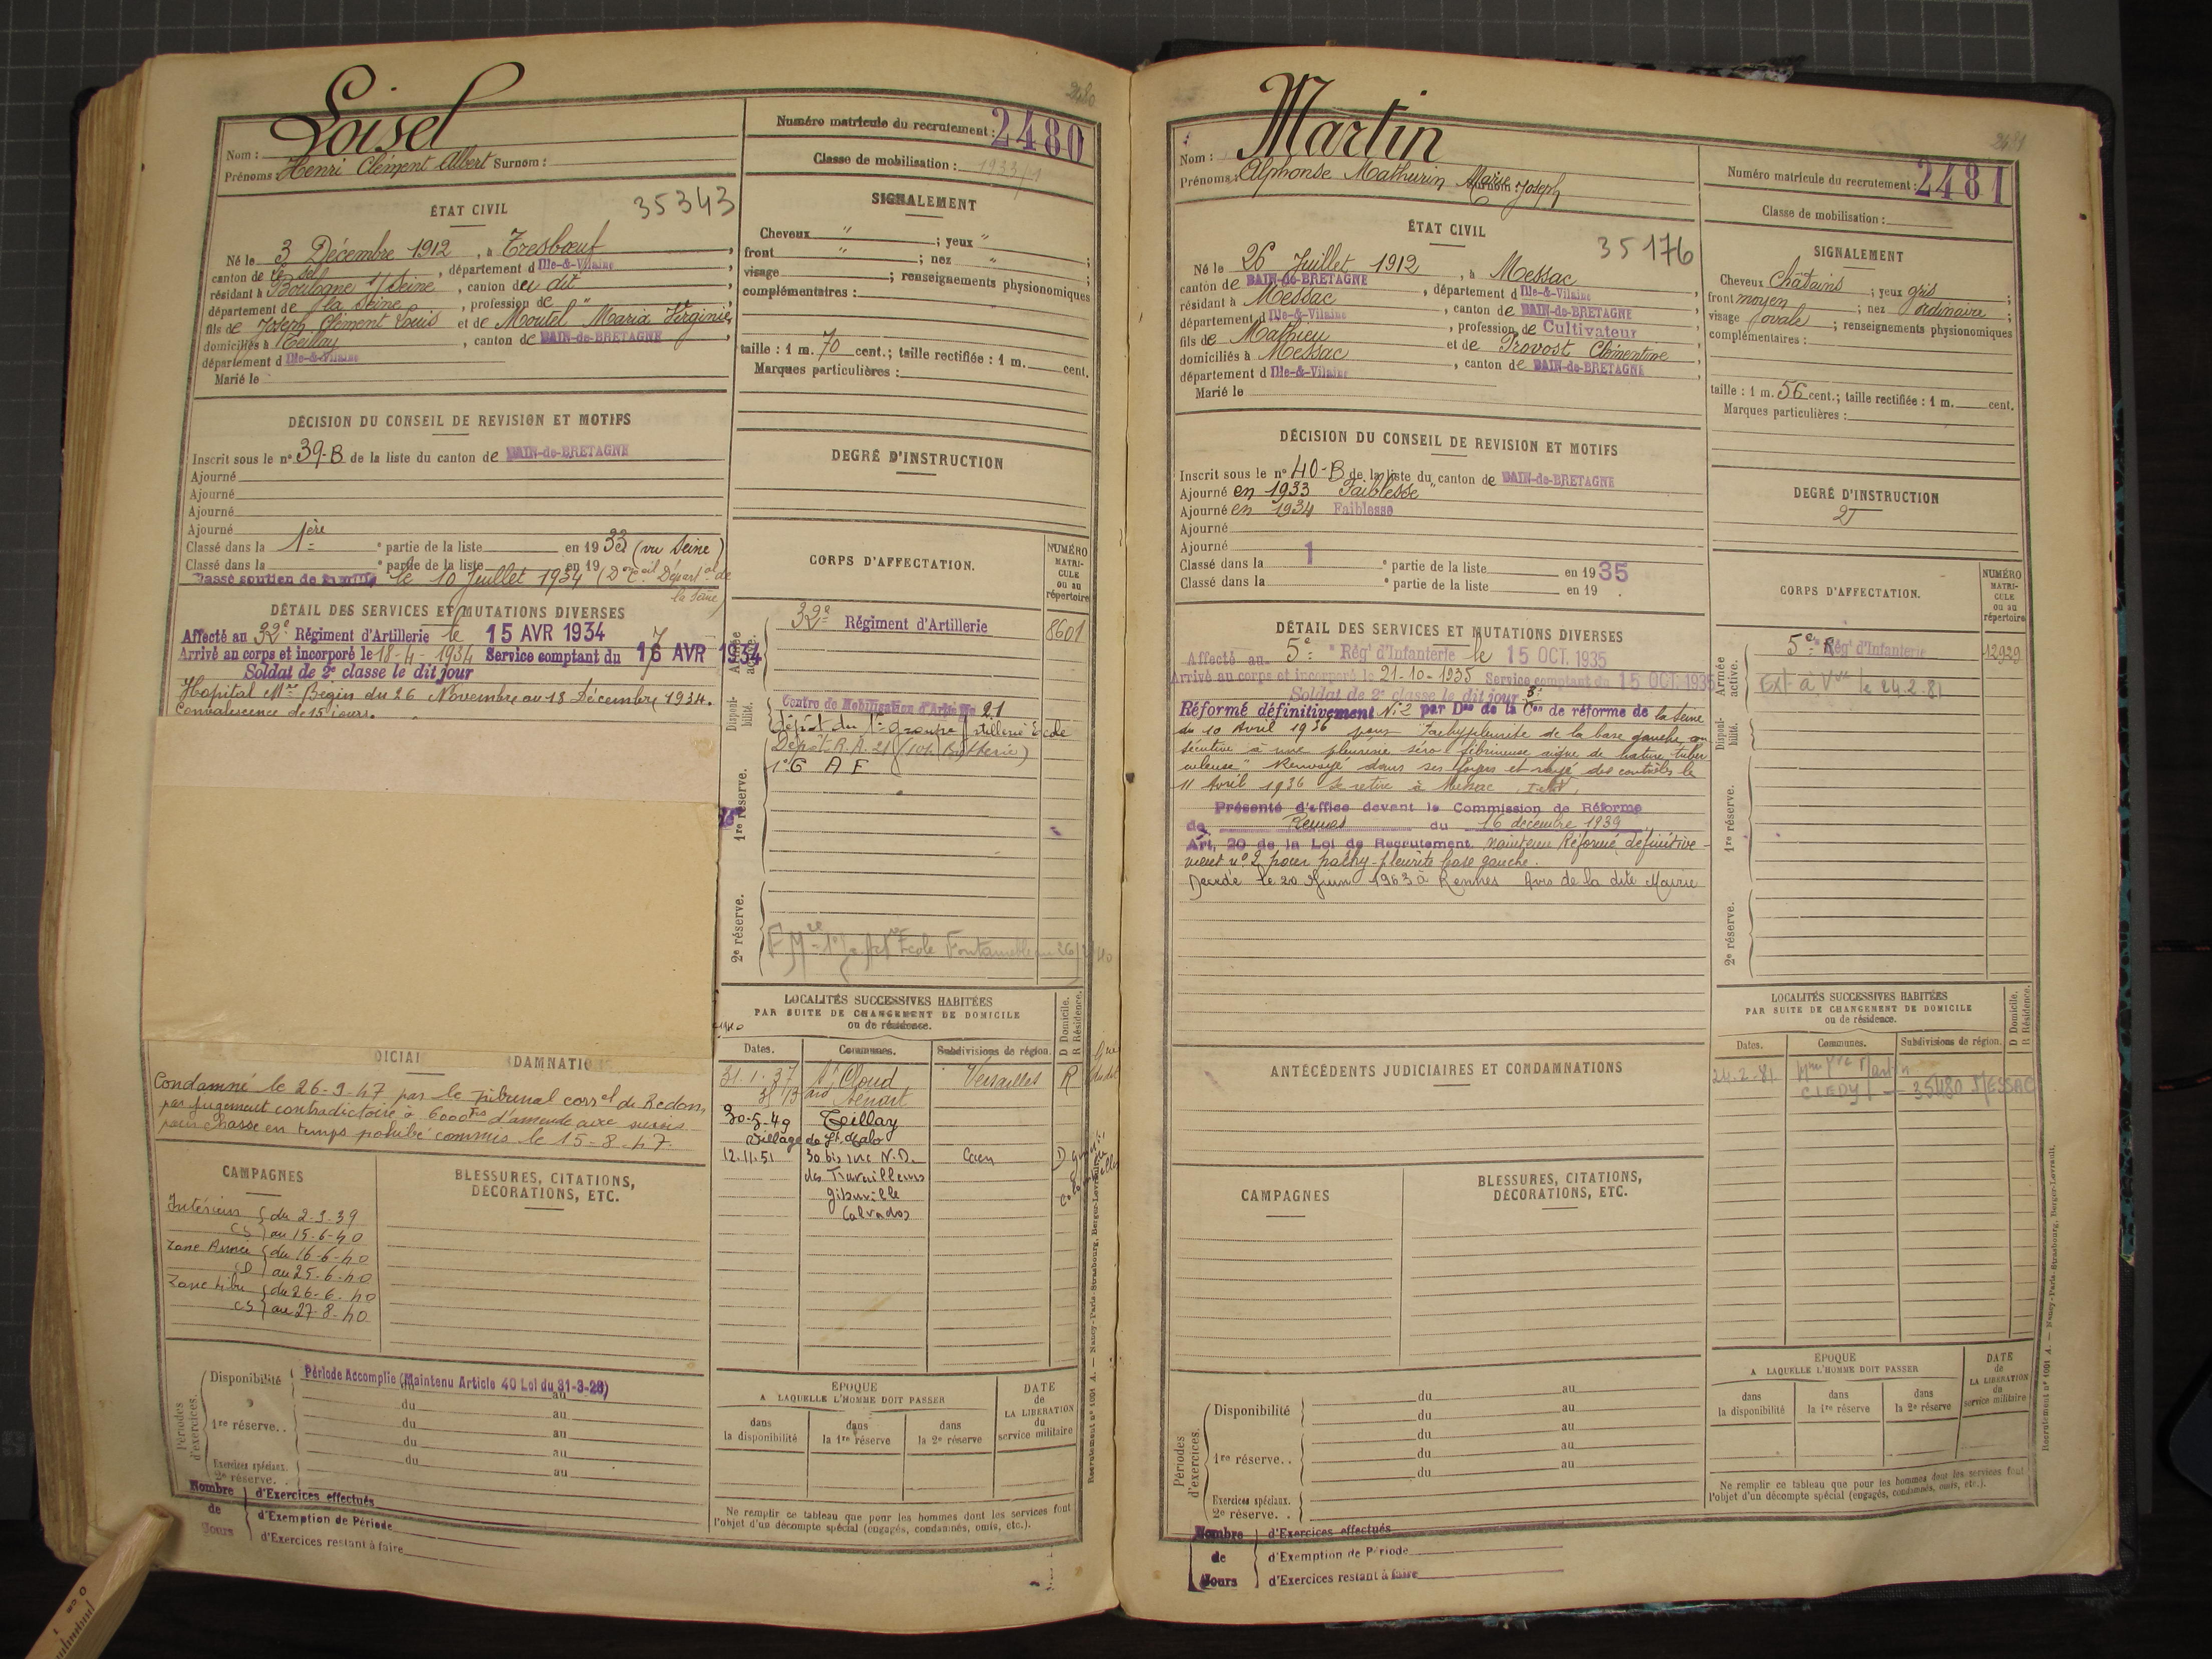 2480
Loisel
Nom :
Prénoms : Henri Clément Albert Surnom :
Numéro matricule du recrutement : 2480
Classe de mobilisation : 1933/1
ÉTAT CIVIL
35343
Né le 3 Décembre 1912, à Tresbœuf,
canton de Le Sel, département d Ille-&-Vilaine,
résidant à Boulogne s/ Seine, canton de u dit,
département de la Seine, profession de "
fils de Joseph Clément Louis et de Moutel Maria Virginie,
domiciliés à Teillay, canton de BAIN-de-BRETAGNE,
département d Ille-&-Vilaine
Marié le
SIGNALEMENT
Cheveux " ; yeux " ;
front " ; nez " ;
visage ; renseignements physionomiques
complémentaires :
taille : 1 m. 70 cent.; taille rectifiée : 1 m. cent.
Marques particulières :
DÉCISION DU CONSEIL DE REVISION ET MOTIFS
Inscrit sous le n° 39-B de la liste du canton de BAIN-de-BRETAGNE
Ajourné
Ajourné
Ajourné
Ajourné
Classé dans la 1ère ° partie de la liste en 19 33 (vu Seine)
Classé dans la ° partie de la liste en 19
Classé soutien de famille le 10 Juillet 1934 (Don Ceil Départal de
la Seine)
DEGRÉ D'INSTRUCTION
DÉTAIL DES SERVICES ET MUTATIONS DIVERSES
Affecté au 32e Régiment d'Artillerie le 15 AVR 1934
Arrivé au corps et incorporé le 18-4-1934 Service comptant du 16 AVR 1934
7
Soldat de 2e classe le dit jour
Hopital Mre Begin du 26 Novembre au 18 Décembre 1934.
Convalescence de 15 jours.
CORPS D'AFFECTATION.
NUMÉRO MATRI-CULE ou au répertoire
Armée active.
32e Régiment d'Artillerie 8601
Disponi-bilité.
Centre de Mobilisation d'Artie No 21
Dépôt du 1er Groupe Artillerie École
1re réserve.
Dépôt R.A. 21 (101e Batterie)
1er G A E
2e réserve.
LOCALITÉS SUCCESSIVES HABITÉES
PAR SUITE DE CHANGEMENT DE DOMICILE
ou de résidence.
D Domicile. R Résidence.
Dates. Communes. Subdivisions de région.
31-1-37 St Cloud Versailles R
30-5-49 Teillay
Village de St Malo
12.11.51 30 bis rue N.D. Caen D
des Travailleurs
Giberville
Calvados
DICIAI DAMNATIO
Condamné le 26-9-47 par le Tribunal correl de Redon,
par jugement contradictoire à 6000 frs d'amende avec sursis
pour chasse en temps prohibé commis le 15-8-47.
CAMPAGNES
Intérieur du 2-9-39
CS au 15-6-40
Zone Armée du 16-6-40
CD au 25-6-40
Zone libre du 26-6-40
CS au 27-8-40
BLESSURES, CITATIONS,
DÉCORATIONS, ETC.
Périodes d'exercices.
Disponibilité Période Accomplie (Maintenu Article 40 Loi du 31-3-28)
du au
1re réserve. . du au
du au
du au
Exercices spéciaux. du au
2e réserve. .
Nombre de Jours
d'Exercices effectués
d'Exemption de Période
d'Exercices restant à faire
ÉPOQUE
A LAQUELLE L'HOMME DOIT PASSER
dans la disponibilité
dans la 1re réserve
dans la 2e réserve
DATE de LA LIBÉRATION du service militaire
Ne remplir ce tableau que pour les hommes dont les services font
l'objet d'un décompte spécial (engagés, condamnés, omis, etc.).
Recrutement n° 1001 A. — Nancy-Paris-Strasbourg, Berger-Levrault.
2481
Martin
Nom :
Prénoms : Alphonse Mathurin Marie Joseph
Surnom :
Numéro matricule du recrutement : 2481
Classe de mobilisation :
ÉTAT CIVIL
35176
Né le 26 Juillet 1912, à Messac,
canton de BAIN-de-BRETAGNE, département d Ille-&-Vilaine,
résidant à Messac, canton de BAIN-de-BRETAGNE,
département d Ille-&-Vilaine, profession de Cultivateur,
fils de Mathieu et de Provost Clémentine,
domiciliés à Messac, canton de BAIN-de-BRETAGNE,
département d Ille-&-Vilaine
Marié le
SIGNALEMENT
Cheveux Châtains ; yeux gris ;
front moyen ; nez ordinaire ;
visage ovale ; renseignements physionomiques
complémentaires :
taille : 1 m. 56 cent.; taille rectifiée : 1 m. cent.
Marques particulières :
DÉCISION DU CONSEIL DE REVISION ET MOTIFS
Inscrit sous le n° 40-B de la liste du canton de BAIN-de-BRETAGNE
Ajourné en 1933 "Faiblesse"
Ajourné en 1934 Faiblesse
Ajourné
Ajourné
Classé dans la 1 ° partie de la liste en 19 35
Classé dans la ° partie de la liste en 19 .
DEGRÉ D'INSTRUCTION
2
DÉTAIL DES SERVICES ET MUTATIONS DIVERSES
Affecté au 5e Régt d'Infanterie le 15 OCT. 1935
Arrivé au corps et incorporé le 21-10-1935 Service comptant du 15 OCT. 1935
Soldat de 2e classe le dit jour
Réformé définitivement No 2 par Don de la 3e Con de réforme de la Seine
du 10 Avril 1936 pour "Pachypleurite de la base gauche con
sécutive à une pleurésie séro fibrineuse signe de nature tuber
culeuse" Renvoyé dans ses foyers et rayé des contrôles le
11 Avril 1936 Se retire à Messac, I et V,
Présenté d'office devant la Commission de Réforme
de Rennes du 16 décembre 1939
Art, 20 de la Loi de Recrutement, maintenu Réformé définitive-
ment no 2 pour pachy-pleurite base gauche.
Décédé le 20 Juin 1963 à Rennes Avis de la dite Mairie
CORPS D'AFFECTATION.
NUMÉRO MATRI-CULE ou au répertoire
Armée active.
5e Régt d'Infanterie 12929
Ext à Vve le 24.2.81
Disponi-bilité.
1re réserve.
2e réserve.
ANTÉCÉDENTS JUDICIAIRES ET CONDAMNATIONS
LOCALITÉS SUCCESSIVES HABITÉES
PAR SUITE DE CHANGEMENT DE DOMICILE
ou de résidence.
D Domicile. R Résidence.
Dates. Communes. Subdivisions de région.
24.2.81 Mme Vve Martin
35480 MESSAC
CAMPAGNES
BLESSURES, CITATIONS,
DÉCORATIONS, ETC.
Périodes d'exercices.
Disponibilité du au
du au
1re réserve. . du au
du au
du au
Exercices spéciaux.
2e réserve. .
Nombre de Jours
d'Exercices effectués
d'Exemption de Période
d'Exercices restant à faire
ÉPOQUE
A LAQUELLE L'HOMME DOIT PASSER
dans la disponibilité
dans la 1re réserve
dans la 2e réserve
DATE de LA LIBÉRATION du service militaire
Ne remplir ce tableau que pour les hommes dont les services font
l'objet d'un décompte spécial (engagés, condamnés, omis, etc.).
Recrutement n° 1001 A. — Nancy-Paris-Strasbourg, Berger-Levrault.